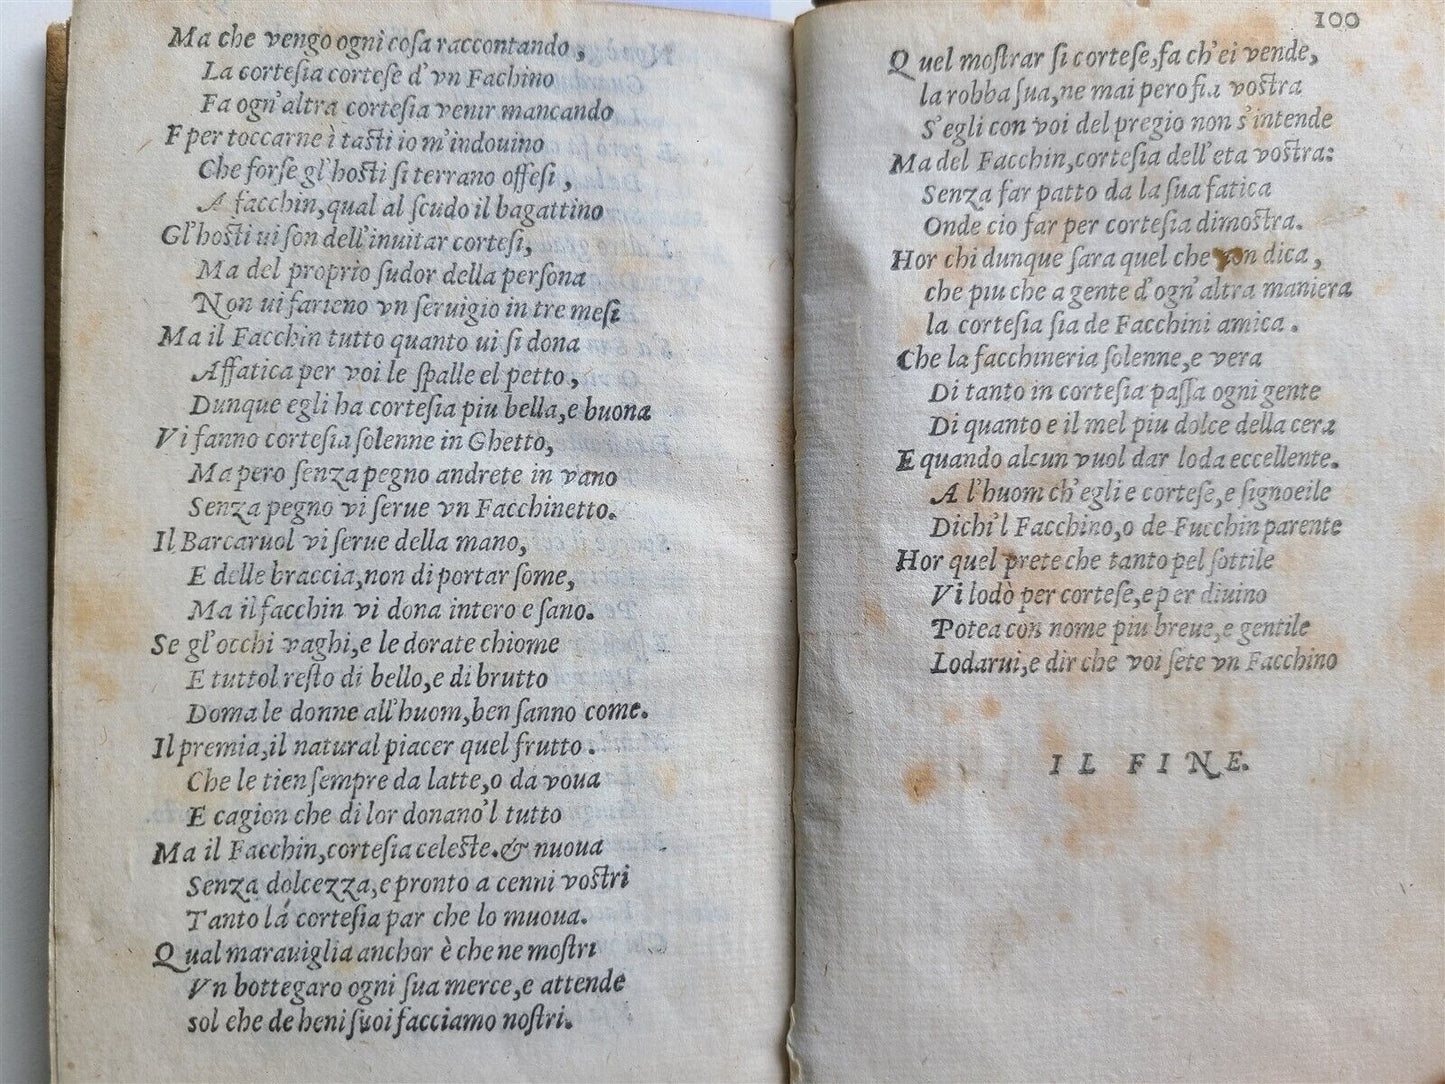 Ma che vengo ogni coſa raccontando,
La corteſia corteſe d'vn Fachino
Fa ogn'altra corteſia venir mancando
F per toccarne i taſti io m'indouino
Che forſe gl'hoſti ſi terrano offeſi,
A facchin, qual al ſcudo il bagattino
Gl'hoſti ui ſon dell'inuitar corteſi,
Ma del proprio ſudor della perſona
Non ui farieno vn ſeruigio in tre meſi
Ma il Facchin tutto quanto ui ſi dona
Affatica per voi le ſpalle el petto,
Dunque egli ha corteſia piu bella, e buona
Vi fanno corteſia ſolenne in Ghetto,
Ma pero ſenza pegno andrete in vano
Senza pegno vi ſerue vn Facchinetto.
Il Barcaruol vi ſerue della mano,
E delle braccia, non di portar ſome,
Ma il facchin vi dona intero e ſano.
Se gl'occhi vaghi, e le dorate chiome
E tuttol reſto di bello, e di brutto
Doma le donne all'huom, ben ſanno come.
Il premia, il natural piacer quel frutto.
Che le tien ſempre da latte, o da voua
E cagion che di lor donano'l tutto
Ma il Facchin, corteſia celeſte. & nuoua
Senza dolcezza, e pronto a cenni voſtri
Tanto lá corteſia par che lo muoua.
Qual marauiglia anchor è che ne moſtri
Vn bottegaro ogni ſua merce, e attende
sol ehe de beni ſuoi facciamo noſtri.
100
Quel moſtrar ſi corteſe, fa ch'ei vende,
la robba ſua, ne mai pero fia voſtra
S'egli con voi del pregio non s'intende
Ma del Facchin, corteſia dell'eta voſtra:
Senza far patto da la ſua fatica
Onde cio far per corteſia dimoſtra.
Hor chi dunque ſara quel che non dica,
che piu che a gente d'ogn'altra maniera
la corteſia ſia de Facchini amica.
Che la facchineria ſolenne, e vera
Di tanto in corteſia paſſa ogni gente
Di quanto e il mel piu dolce della cera
E quando alcun vuol dar loda eccellente.
A l'huom ch'egli e corteſe, e ſignoeile
Dichi'l Facchino, o de Fucchin parente
Hor quel prete che tanto pel ſottile
Vi lodò per corteſe, e per diuino
Potea con nome piu breue, e gentile
Lodarui, e dir che voi ſete vn Facchino
IL FINE.